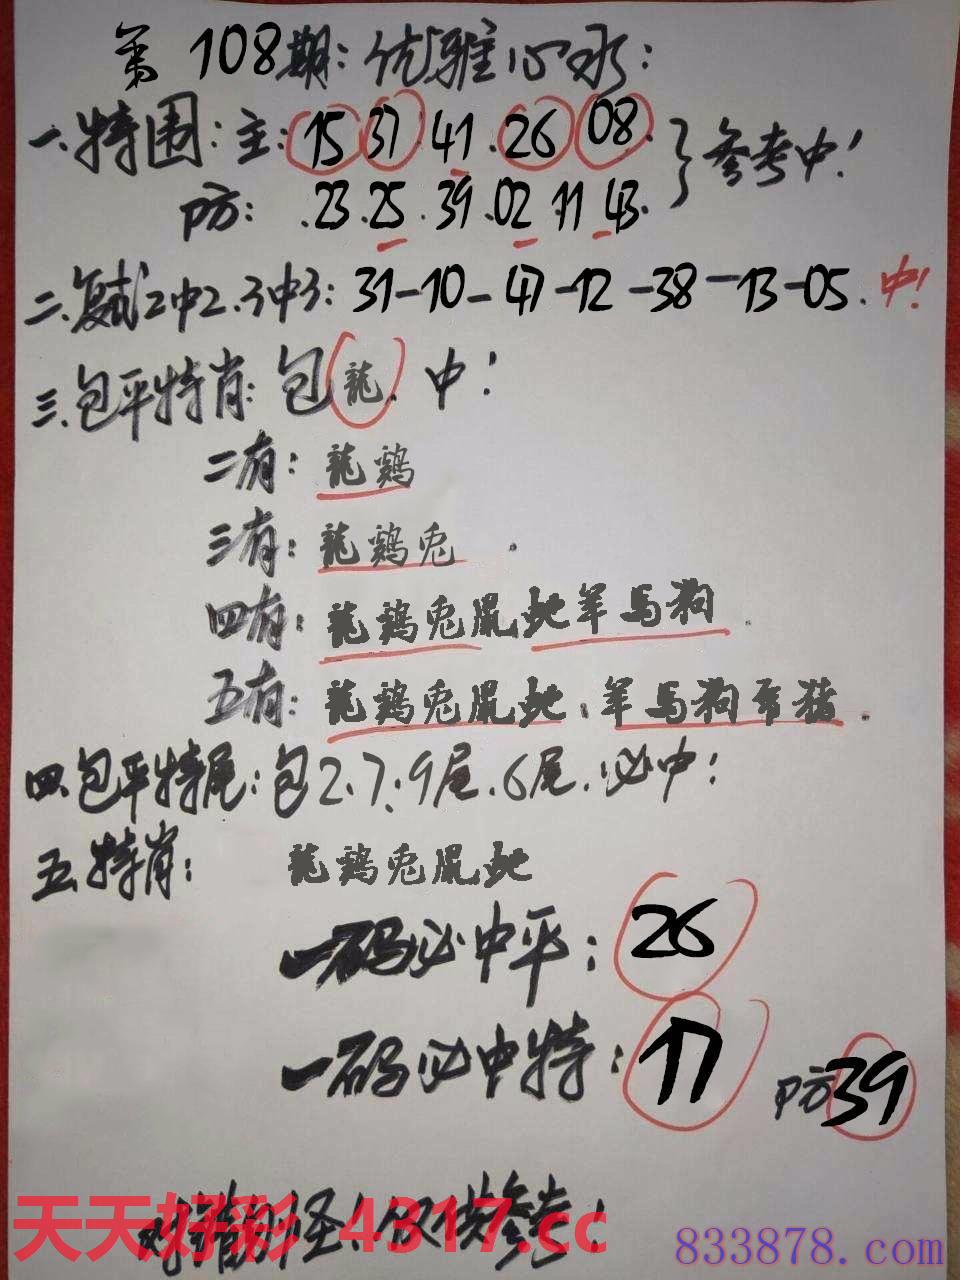 第108期:优雅心水:
一.特围:主:15 37 41.26 08.}参考中!
防:.23.25.39.02 11 43.
二.复试2中2.3中3:31-10-47-12-38-13-05.中!
三.包平特肖:包龍.中!
二有:龍鷄
三有:龍鷄兎.
四有:龍鷄兎鼠蛇羊马狗.
五有:龍鷄兎鼠蛇.羊马狗希猪.
四.包平特尾:包2.7.9尾.6尾.必中:
五.特肖:龍鷄兎鼠蛇
一码必中平:26
一码必中特:17 防39
仅供参考!
天天好彩 4317.cc
833878.com